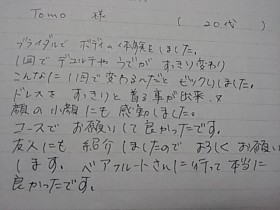 Tomo 様 (20代)
ブライダルで ボディの体験をしました。
1回で デコルテや うでが すっきり変わり
こんなに 1回で変わるんだと ビックリしました。
ドレスを すっきりと 着る事が出来、又
顔の小顔にも 感動しました。
コースで お願いして良かったです。
友人にも 紹介しましたので よろしくお願い
します。 ベアフルートさんに行って本当に
良かったです。